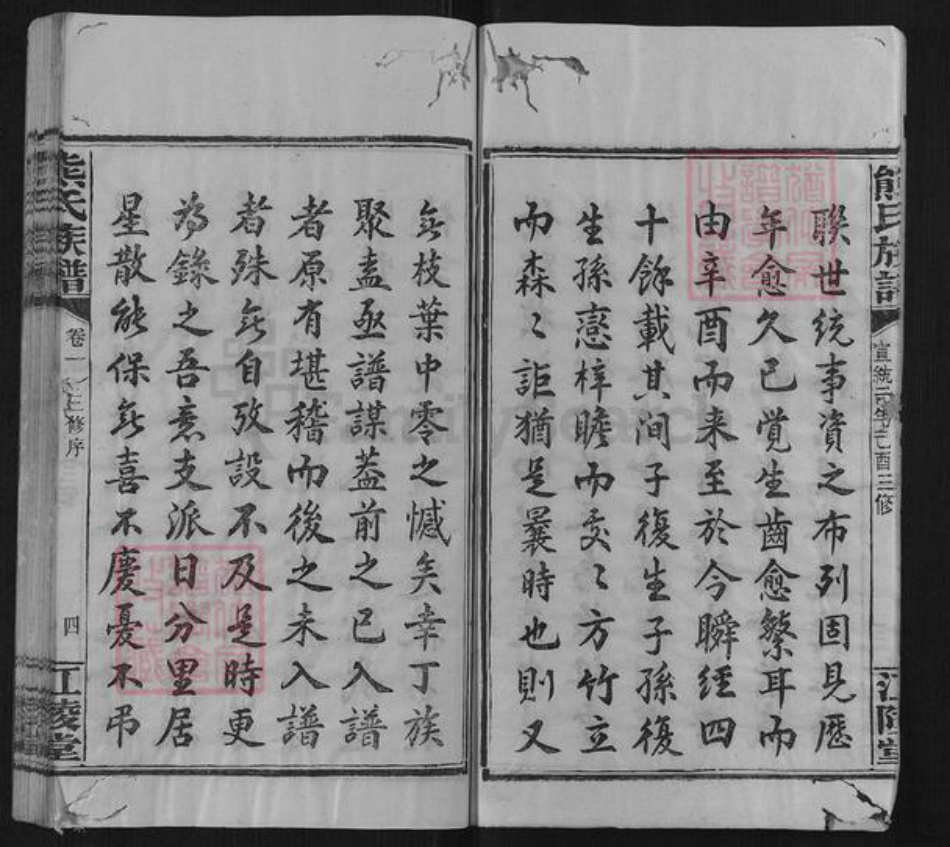 熊氏族譜
宣統元年己酉三修
江陵堂
聯世統事資之布列固見歷
年愈久已覺生齒愈繁耳而
由辛酉而来至於今瞬經四
十餘載其间子復生子孫復
生孫憲梓瞻而奕〻方竹立
而森〻詎猶是曩時也則又
無枝葉中零之憾矣幸丁族
聚盍亟譜謀蓋前之已入譜
者原有堪稽而後之未入譜
者殊無自攷設不及是時更
為錄之吾意支派日分里居
星散能保無喜不慶憂不弔
熊氏族譜
卷一
三修序
四
江陵堂
FamilySearch